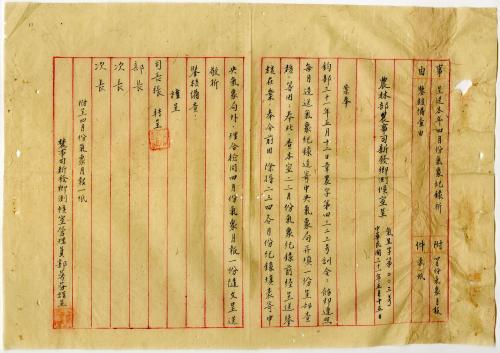 事由
呈送本年四月份氣象紀錄祈
鑒核備查由
附件
四月份氣象月報
表一紙
農林部農事司新發鄉測候室呈
氣呈字第二〇三號
中華民國三十一年五月十五日
案奉
鈞部三十一年五月十二日章農字第四二三三號訓令；飭即遵照
每月造送氣象紀錄逕寄中央氣象局并填一份呈部查
核，等因；奉此，查本室二三月份氣象紀錄前經呈送鑒
核在案，奉令前因，除將二三四各月份紀錄填表寄中
央氣象局外，理合檢同四月份氣象月報一份隨文呈送
敬祈
鑒核備查
謹呈
司長張 轉呈
部長
次長
次長
附呈四月份氣象月報一紙
農事司新發鄉測候室管理員郭芳谷謹呈